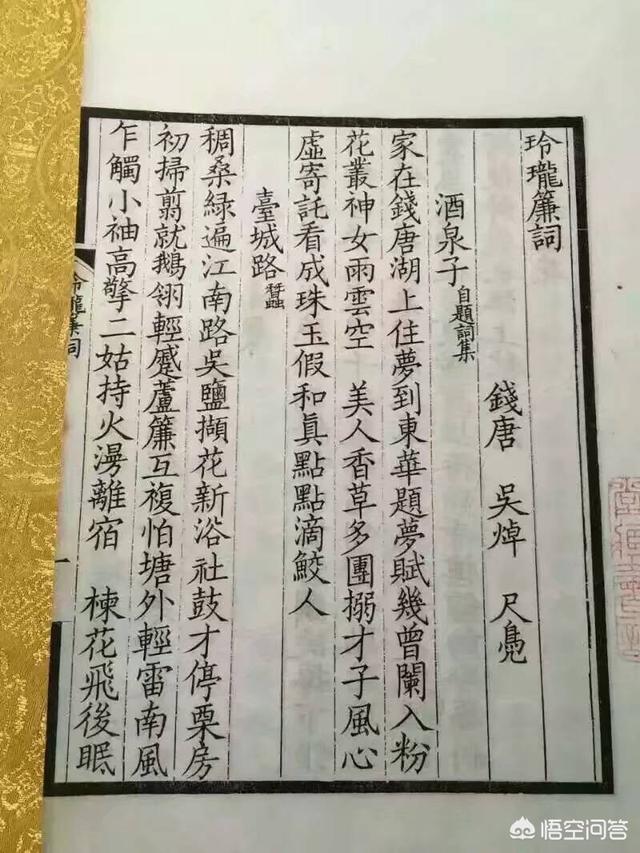 玲瓏簾詞
錢唐 吳焯 尺鳧
酒泉子 自題詞集
家在錢唐湖上住夢到東華題夢賦幾曾闌入粉
花叢神女雨雲空 美人香草多團搦才子風心
虛寄託看成珠玉假和眞點點滴鮫人
臺城路 蠶
稠桑綠遍江南路吳鹽擷花新浴社鼓才停栗房
初掃翦就鵝翎輕蹙蘆簾互複怕塘外輕雷南風
乍觸小袖高擎二姑持火漫離宿 楝花飛後眠
玲瓏簾詞
一
悟空问答